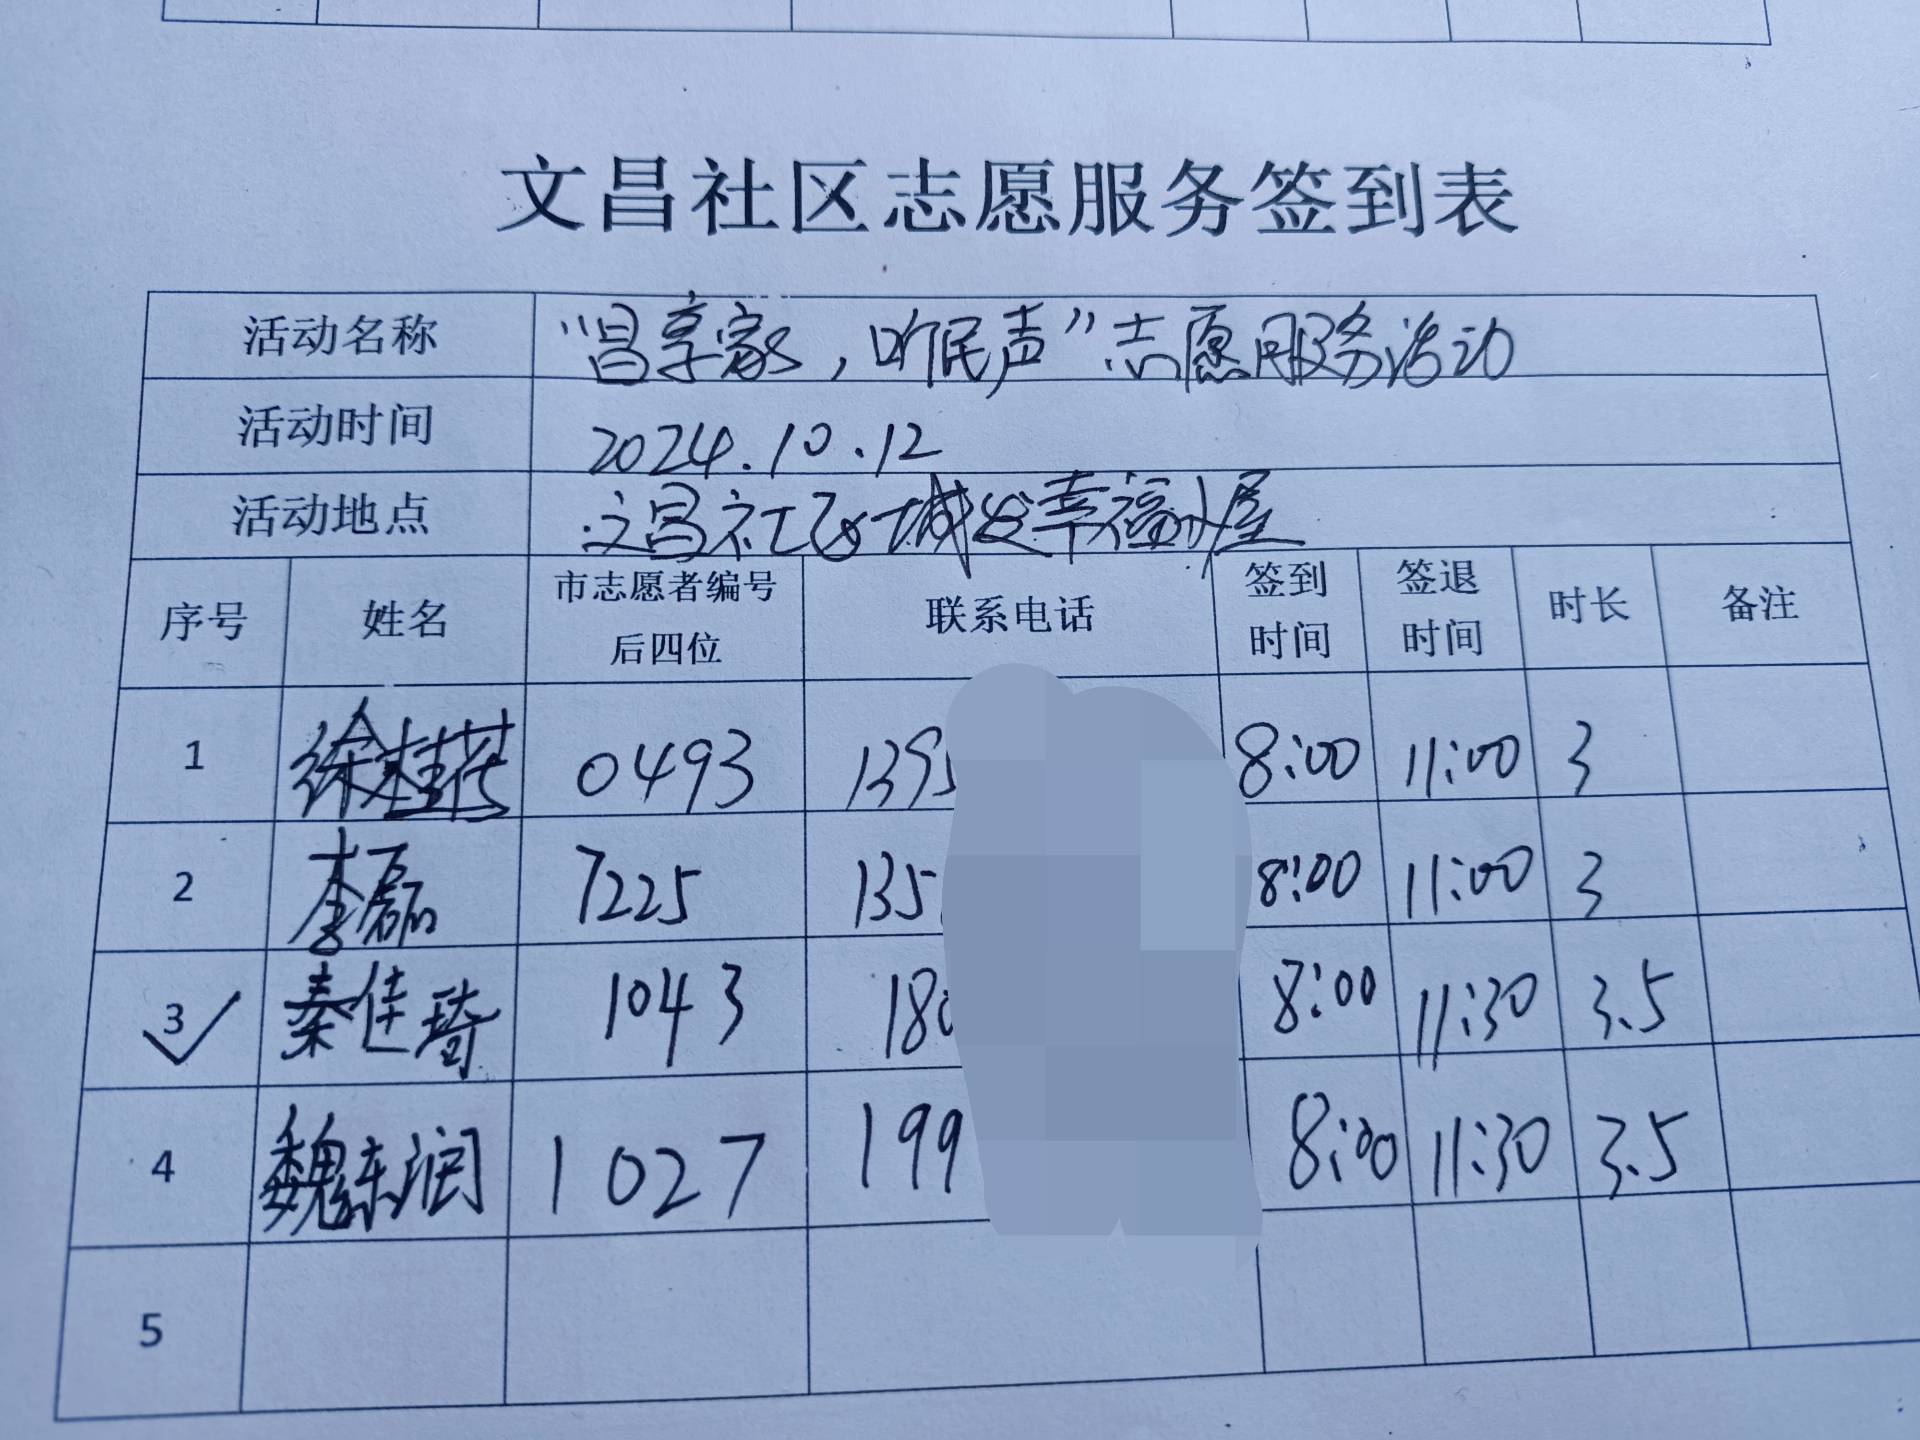 文昌社区志愿服务签到表
活动名称 “昌享家，听民声”志愿服务活动
活动时间 2024.10.12
活动地点 文昌社区城发幸福小屋
序号 姓名 市志愿者编号后四位 联系电话 签到时间 签退时间 时长 备注
1 徐桂花 0493 139 8:00 11:00 3
2 李磊 7225 135 8:00 11:00 3
3 秦佳琦 1043 180 8:00 11:30 3.5
4 魏东润 1027 199 8:00 11:30 3.5
5